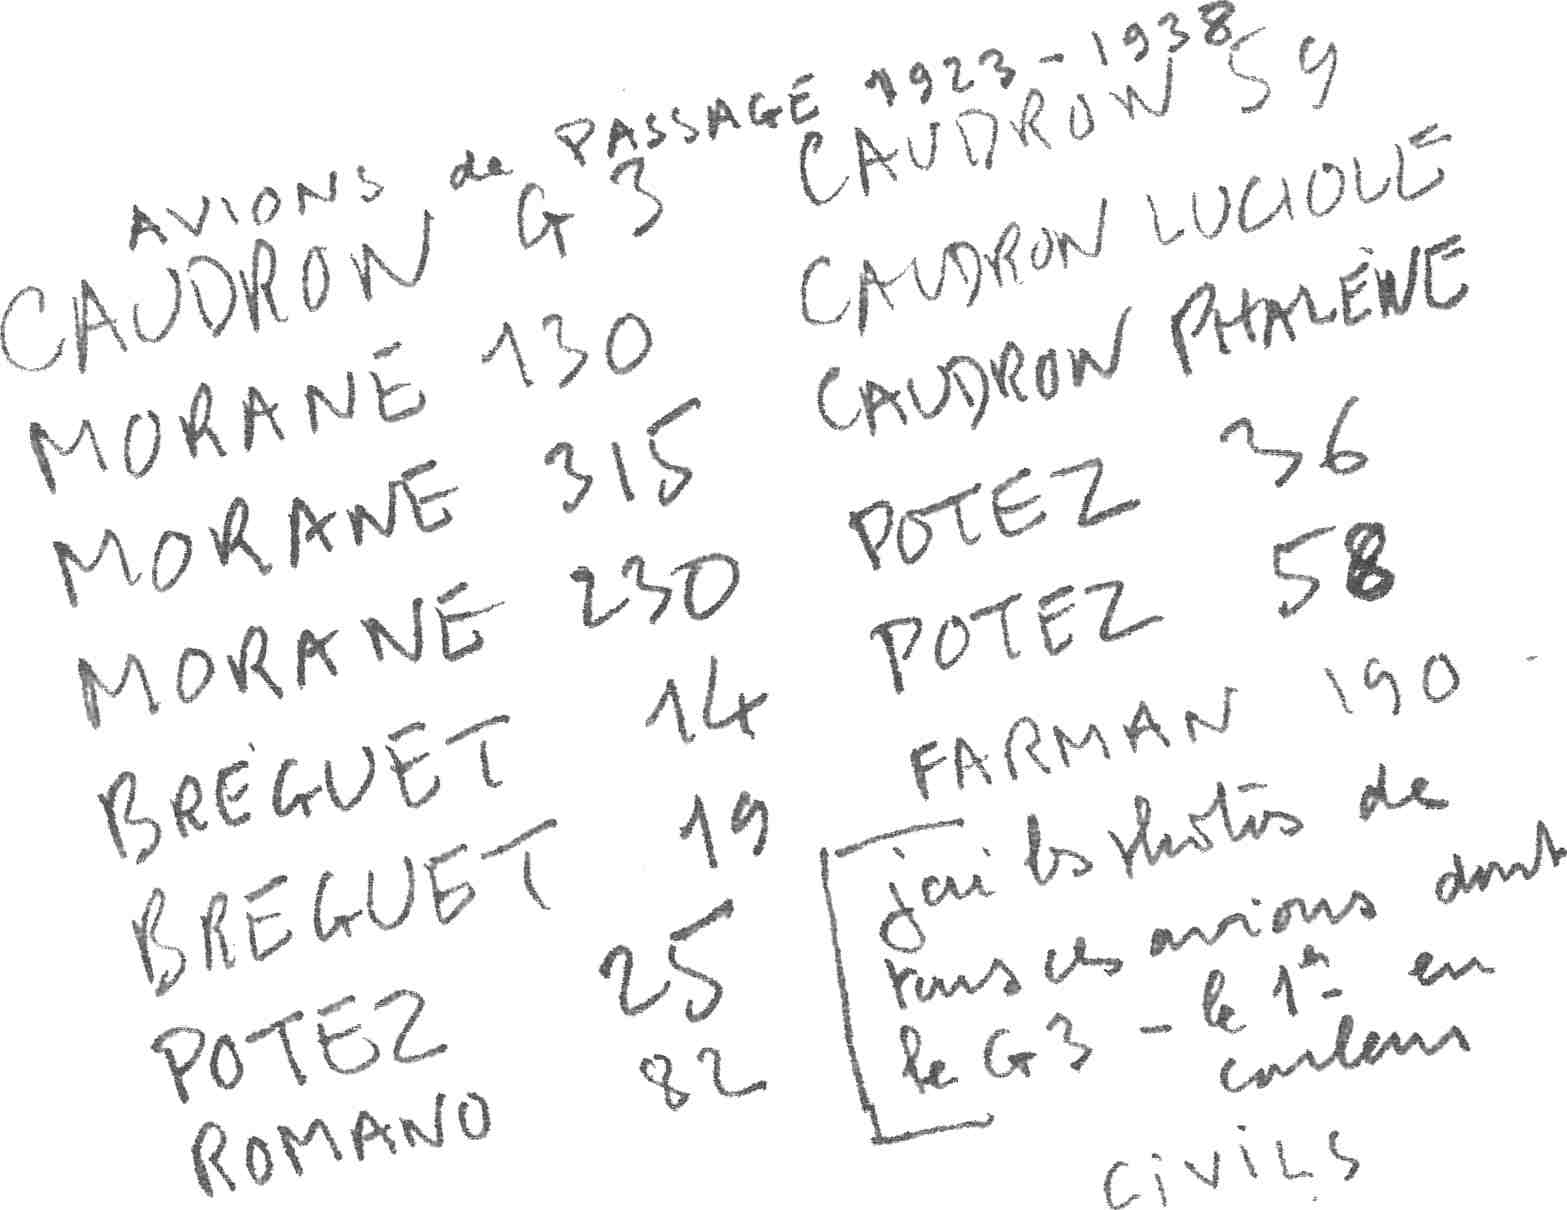 AVIONS de PASSAGE 1923-1938
CAUDRON G3
MORANE 130
MORANE 315
MORANE 230
BREGUET 14
BREGUET 19
POTEZ 25
ROMANO 82
CAUDRON 59
CAUDRON LUCIOLE
CAUDRON PHALÈNE
POTEZ 36
POTEZ 58
FARMAN 190
j'ai les photos de
tous ces avions dont
le G3 - le 1er en
couleurs
CiViLS